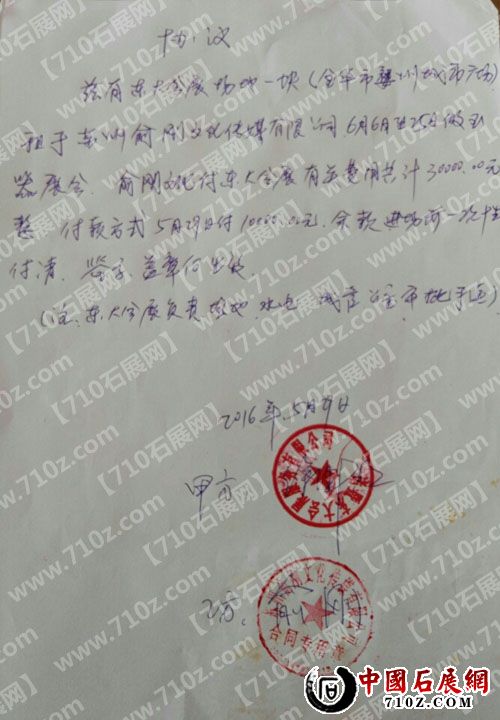 协议
兹有东大会展场地一块(金华市婺州城市广场)
租于苏州俞刚文化传媒有限公司6月6日至25日做玉
器展会. 俞刚文化付东大会展有益费用共计30000.00元
整 付款方式5月29日付10000.00元,余款进场前一次性
付清. 签字、盖章后生效
(注、东大会展负责场地 水电
2016年5月29日
甲方
东大会展
乙方:
文化传媒有限公司
合同专用章
中國石展網
710Z.COM
【710石展网】
www.710z.com